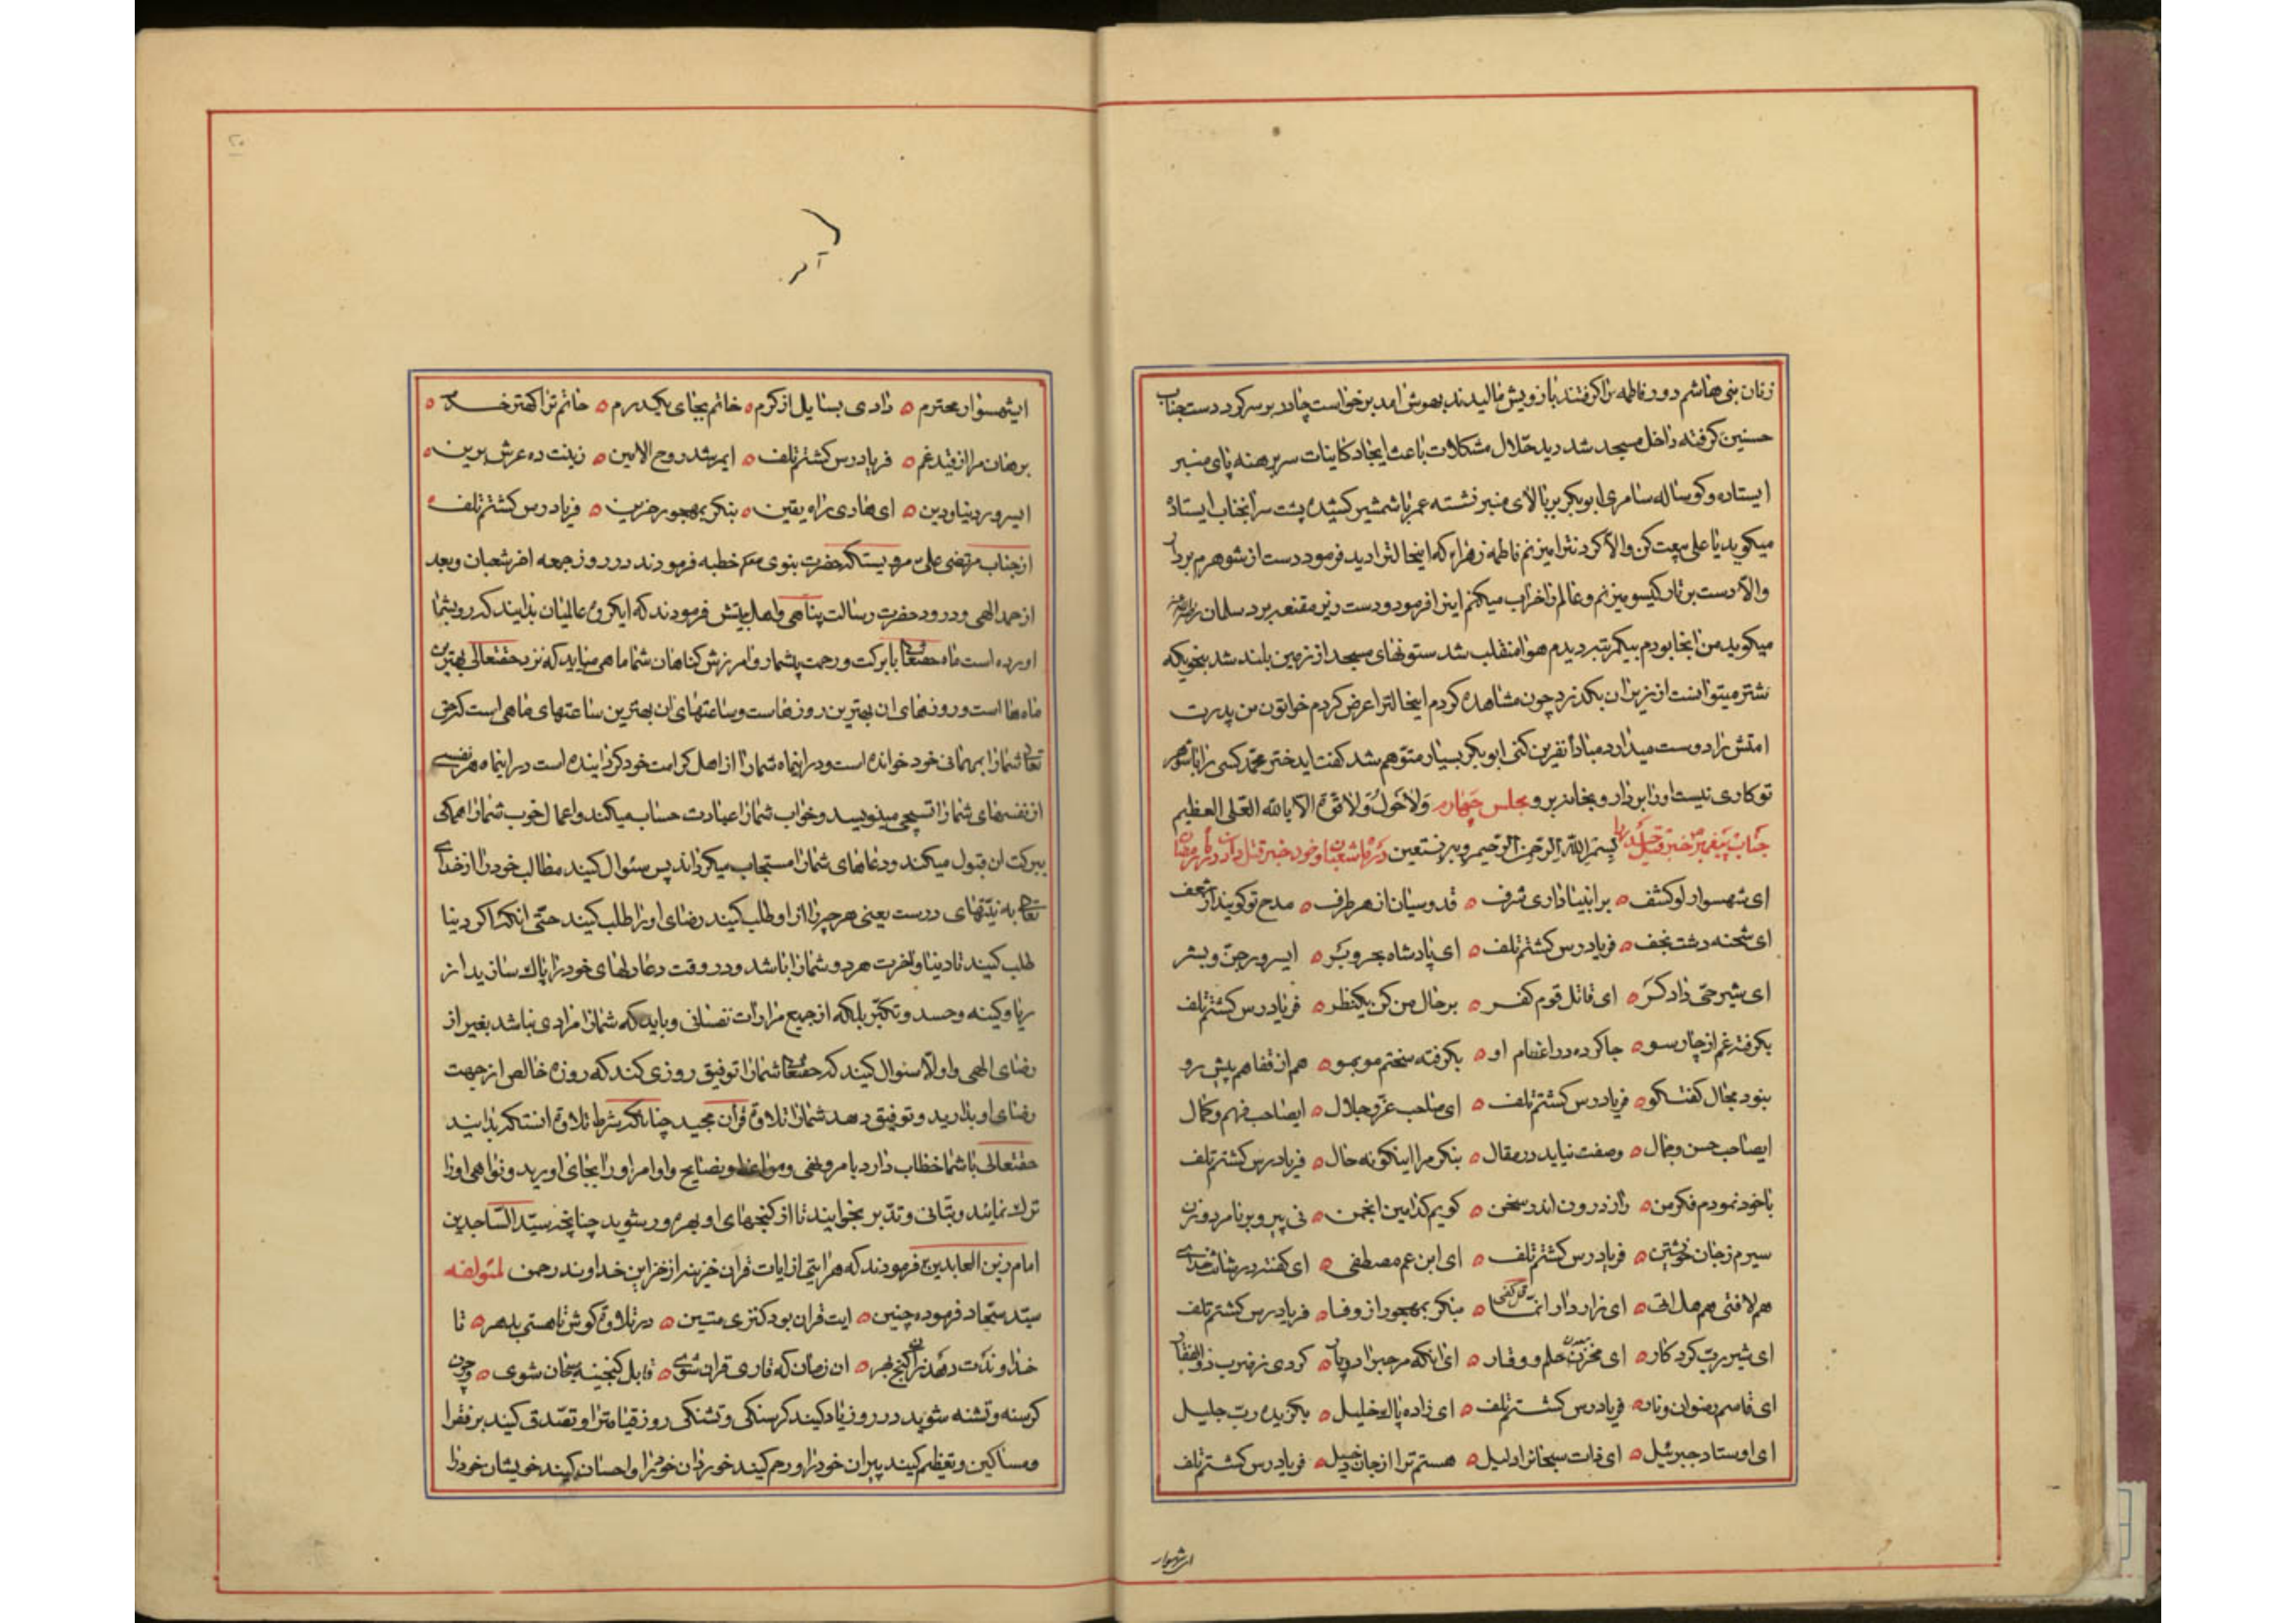 زنان بنی هاشم دور فاطمه را گرفتند بازویش مالیدند بهوش امد برخواست چادر بر سر کرد دست جناب
حسنین گرفته داخل مسجد شد دید حلال مشکلات باعث ایجاد کاینات سر برهنه پای منبر
ایستاده و کوساله سامری ابوبکر بر بالای منبر نشسته عمر با شمشیر کشیده پشت سر انجناب ایستاده
میکوید یا علی بیعت کن والا کردنترا میزنم فاطمه زهراء که اینحالترا دید فرمود دست از شوهرم بردار
والا دست بر تار کیسو میزنم و عالم را خراب میکنم اینرا فرمود و دست زیر مقنعه برد سلمان
میکوید من انجا بودم بیکمرتبه دیدم هوا منقلب شد ستونهای مسجد از زمین بلند شد بنحویکه
شتر میتوانست از زیر ان بکذرد چون مشاهده کردم اینحالترا عرض کردم خواتون من پدرت
امتش را دوست میدارد مبادا نفرین کنی ابوبکر بسیار متوهم شد کفت ایدختر محمد کسی را با شوهر
تو کاری نیست او را بردار و بخانه برو مجلس چهارم ولا حول ولا قوة الا بالله العلی العظیم
جناب پیغمبر بسم الله الرحمن الرحیم و به نستعین در ماه شعبان
ای شهسوار لو کشف ه بر انبیا داری شرف ه قدوسیان از هر طرف ه مدح تو کویند از شعف
ای شحنه دشت نجف ه فریاد رس کشتم تلف ه ای پادشاه بحر و بر ه ایسرور جن و بشر
ای شیر حق دادکر ه ای قاتل قوم کفر ه بر حال من کن یکنظر ه فریاد رس کشتم تلف
بکرفته غم از چارسو ه جا کرده در اعضام او ه بکرفته سختم مو بمو ه هم از قفا هم پیش رو
نبود مجال کفتکو ه فریاد رس کشتم تلف ه ای صاحب عز و جلال ه ایصاحب فهم و کمال
ایصاحب حسن و جمال ه وصفت نیاید در مقال ه بنکر مرا اینکونه حال ه فریاد رس کشتم تلف
با خود نمودم فکر من ه راز درون اندر سخن ه کویم کدامین انجمن ه نی پیر و برنا مرد و زن
سیرم ز جان خویشتن ه فریاد رس کشتم تلف ه ای ابن عم مصطفی ه ای کفته در شانت خدای
هم لافتی هم هل اتی ه ای رازدار انما ه بنکر بمهجور از وفا ه فریاد رس کشتم تلف
ای شیر رب کردکار ه ای مخزن حلم و وقار ه ای انکه مرحب را دوپار ه کردی ز ضرب ذوالفقار
ای قاسم رضوان و نار ه فریاد رس کشتم تلف ه ای زاده پاک خلیل ه بکزیده رب جلیل
ای اوستاد جبرئیل ه ای ذات سبحانرا دلیل ه هستم ترا از جان دخیل ه فریاد رس کشتم تلف
ای شهسوار
ایشهسوار محترم ه دادی بسایل از کرم ه خاتم بجای یکدرم ه حاتم ترا کمتر خدم ه
برهان مرا از قید غم ه فریاد رس کشتم تلف ه ایمرشد روح الامین ه زینت ده عرش برین ه
ایسرور دنیا و دین ه ای هادی راه یقین ه بنکر بمهجور حزین ه فریاد رس کشتم تلف ه
از جناب مرتضی علی مرویستکه حضرت نبوی خطبه فرمودند در روز جمعه اخر شعبان و بعد
از حمد الهی و درود حضرت رسالت پناهی و اهل بیتش فرمودند که ایکروه عالمیان بدانید که رو بشما
اورده است ماه حقتعالی با برکت و رحمت بیشمار و امرزش کناهان شما ماهی میاید که نزد حقتعالی بهترین
ماه ها است و روزهای ان بهترین روزهاست و ساعتهای ان بهترین ساعتهای ماهی است که حق
تعالی شما را بمهمانی خود خوانده است و در اینماه شما را از اهل کرامت خود کردانیده است در اینماه هر نفسی
از نفسهای شما را تسبیحی مینویسد و خواب شما را عبادت حساب میکند و اعمال خوب شما را همکی
ببرکت ان قبول میکند و دعاهای شما را مستجاب میکرداند پس سئوال کنید مطالب خود را از خدای
تعالی به نیتهای درست یعنی هر چیز را از او طلب کنید رضای او را طلب کنید حتی انکه اکر دنیا
طلب کنید تا دنیا و اخرت هر دو شما را باشد و در وقت دعا دلهای خود را پاک سازید از
ریا و کینه و حسد و تکبر بلکه از جمیع مرادات نفسانی و باید که شما را مرادی نباشد بغیر از
رضای الهی و اولا سئوال کنید که حقتعالی شما را توفیق روزی کند که روزه خالص از جهت
رضای او بدارید و توفیق دهد شما را تلاوة قرآن مجید چنانکه شرط تلاوة انستکه بدانید
حقتعالی با شما خطاب دارد بامر و نهی و مواعظ و نصایح و اوامر او را بجای اورید و نواهی او را
ترک نمائید و بتانی و تدبر بخوانید تا از کنجهای او بهره ور شوید چنانچه سید الساجدین
امام زین العابدین فرمودند که هر ایتی از ایات قران خزینه از خزاین خداوند رحمن لمؤلفه
سید سجاد فرموده چنین ه ایت قران بود کنزی متین ه در تلاوة کوش تا هستی بدهر ه تا
خداوندت دهد زان کنج بهر ه ان زمان که قاری قران شوی ه قابل کنجینه سبحان شوی ه و چون
کرسنه و تشنه شوید در روز یاد کنید کرسنکی و تشنکی روز قیامترا و تصدق کنید بر فقرا
و مساکین و تعظیم کنید پیران خود را و رحم کنید خوردان خود را و احسان کنید خویشان خود را